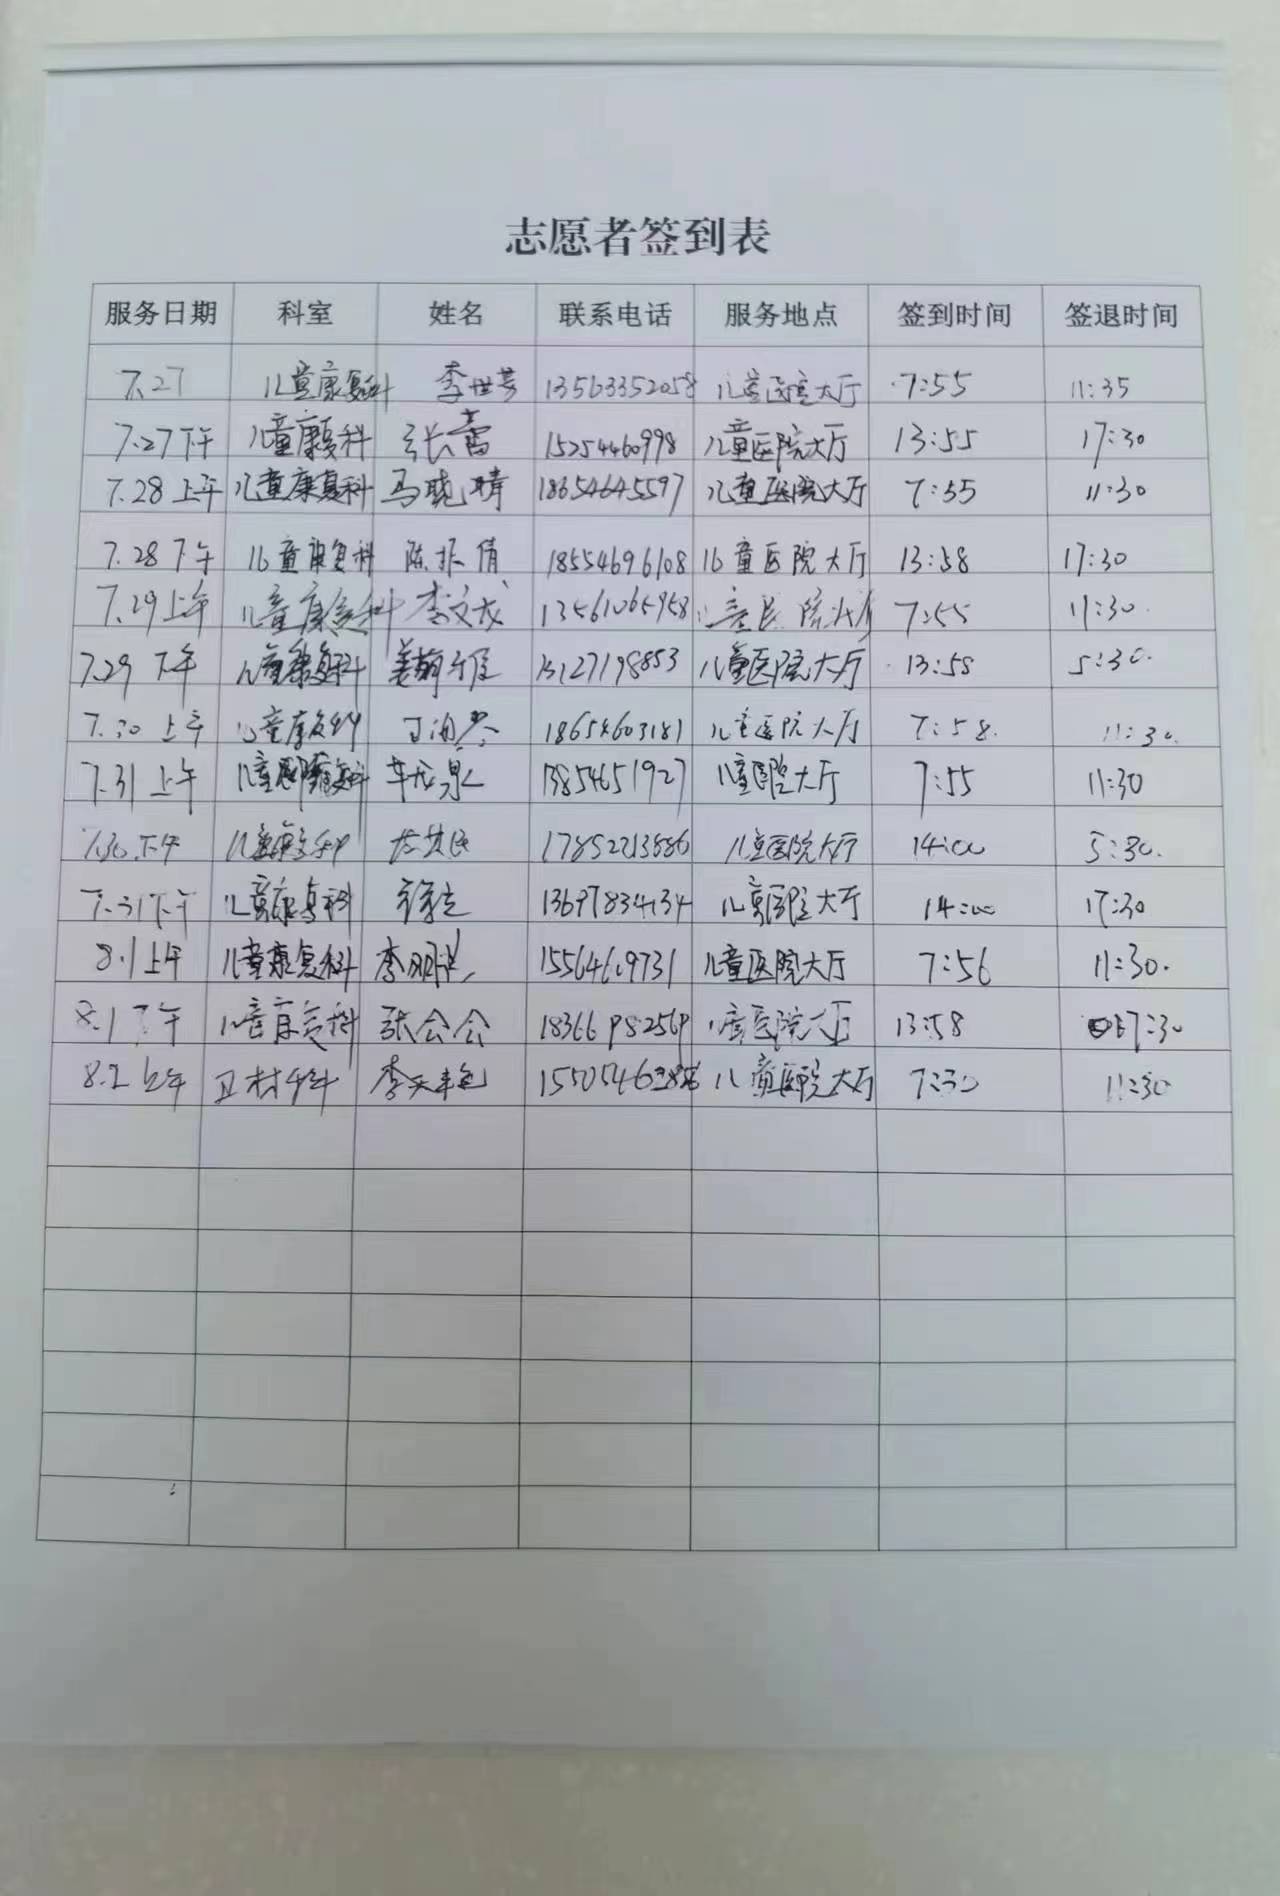 志愿者签到表
服务日期 科室 姓名 联系电话 服务地点 签到时间 签退时间
7.27 儿童康复科 李世芳 13563352058 儿童医院大厅 7:55 11:35
7.27下午 儿童康复科 张蕾 15254460998 儿童医院大厅 13:55 17:30
7.28上午 儿童康复科 马晓晴 18654645597 儿童医院大厅 7:55 11:30
7.28下午 儿童康复科 陈振倩 18554696108 儿童医院大厅 13:58 17:30
7.29上午 儿童康复科 李文龙 13561065958 儿童医院大厅 7:55 11:30
7.29下午 儿童康复科 13127198853 儿童医院大厅 13:58 5:30
7.30上午 儿童康复科 18654603181 儿童医院大厅 7:58 11:30
7.31上午 儿童康复科 13854651927 儿童医院大厅 7:55 11:30
7.30下午 儿童康复科 儿童医院大厅 14:00 5:30
7.31下午 儿童康复科 13697834134 儿童医院大厅 14:00 17:30
8.1上午 儿童康复科 儿童医院大厅 7:56 11:30
8.1下午 儿童康复科 张会会 儿童医院大厅 13:58 17:30
8.2上午 儿童医院大厅 7:30 11:30